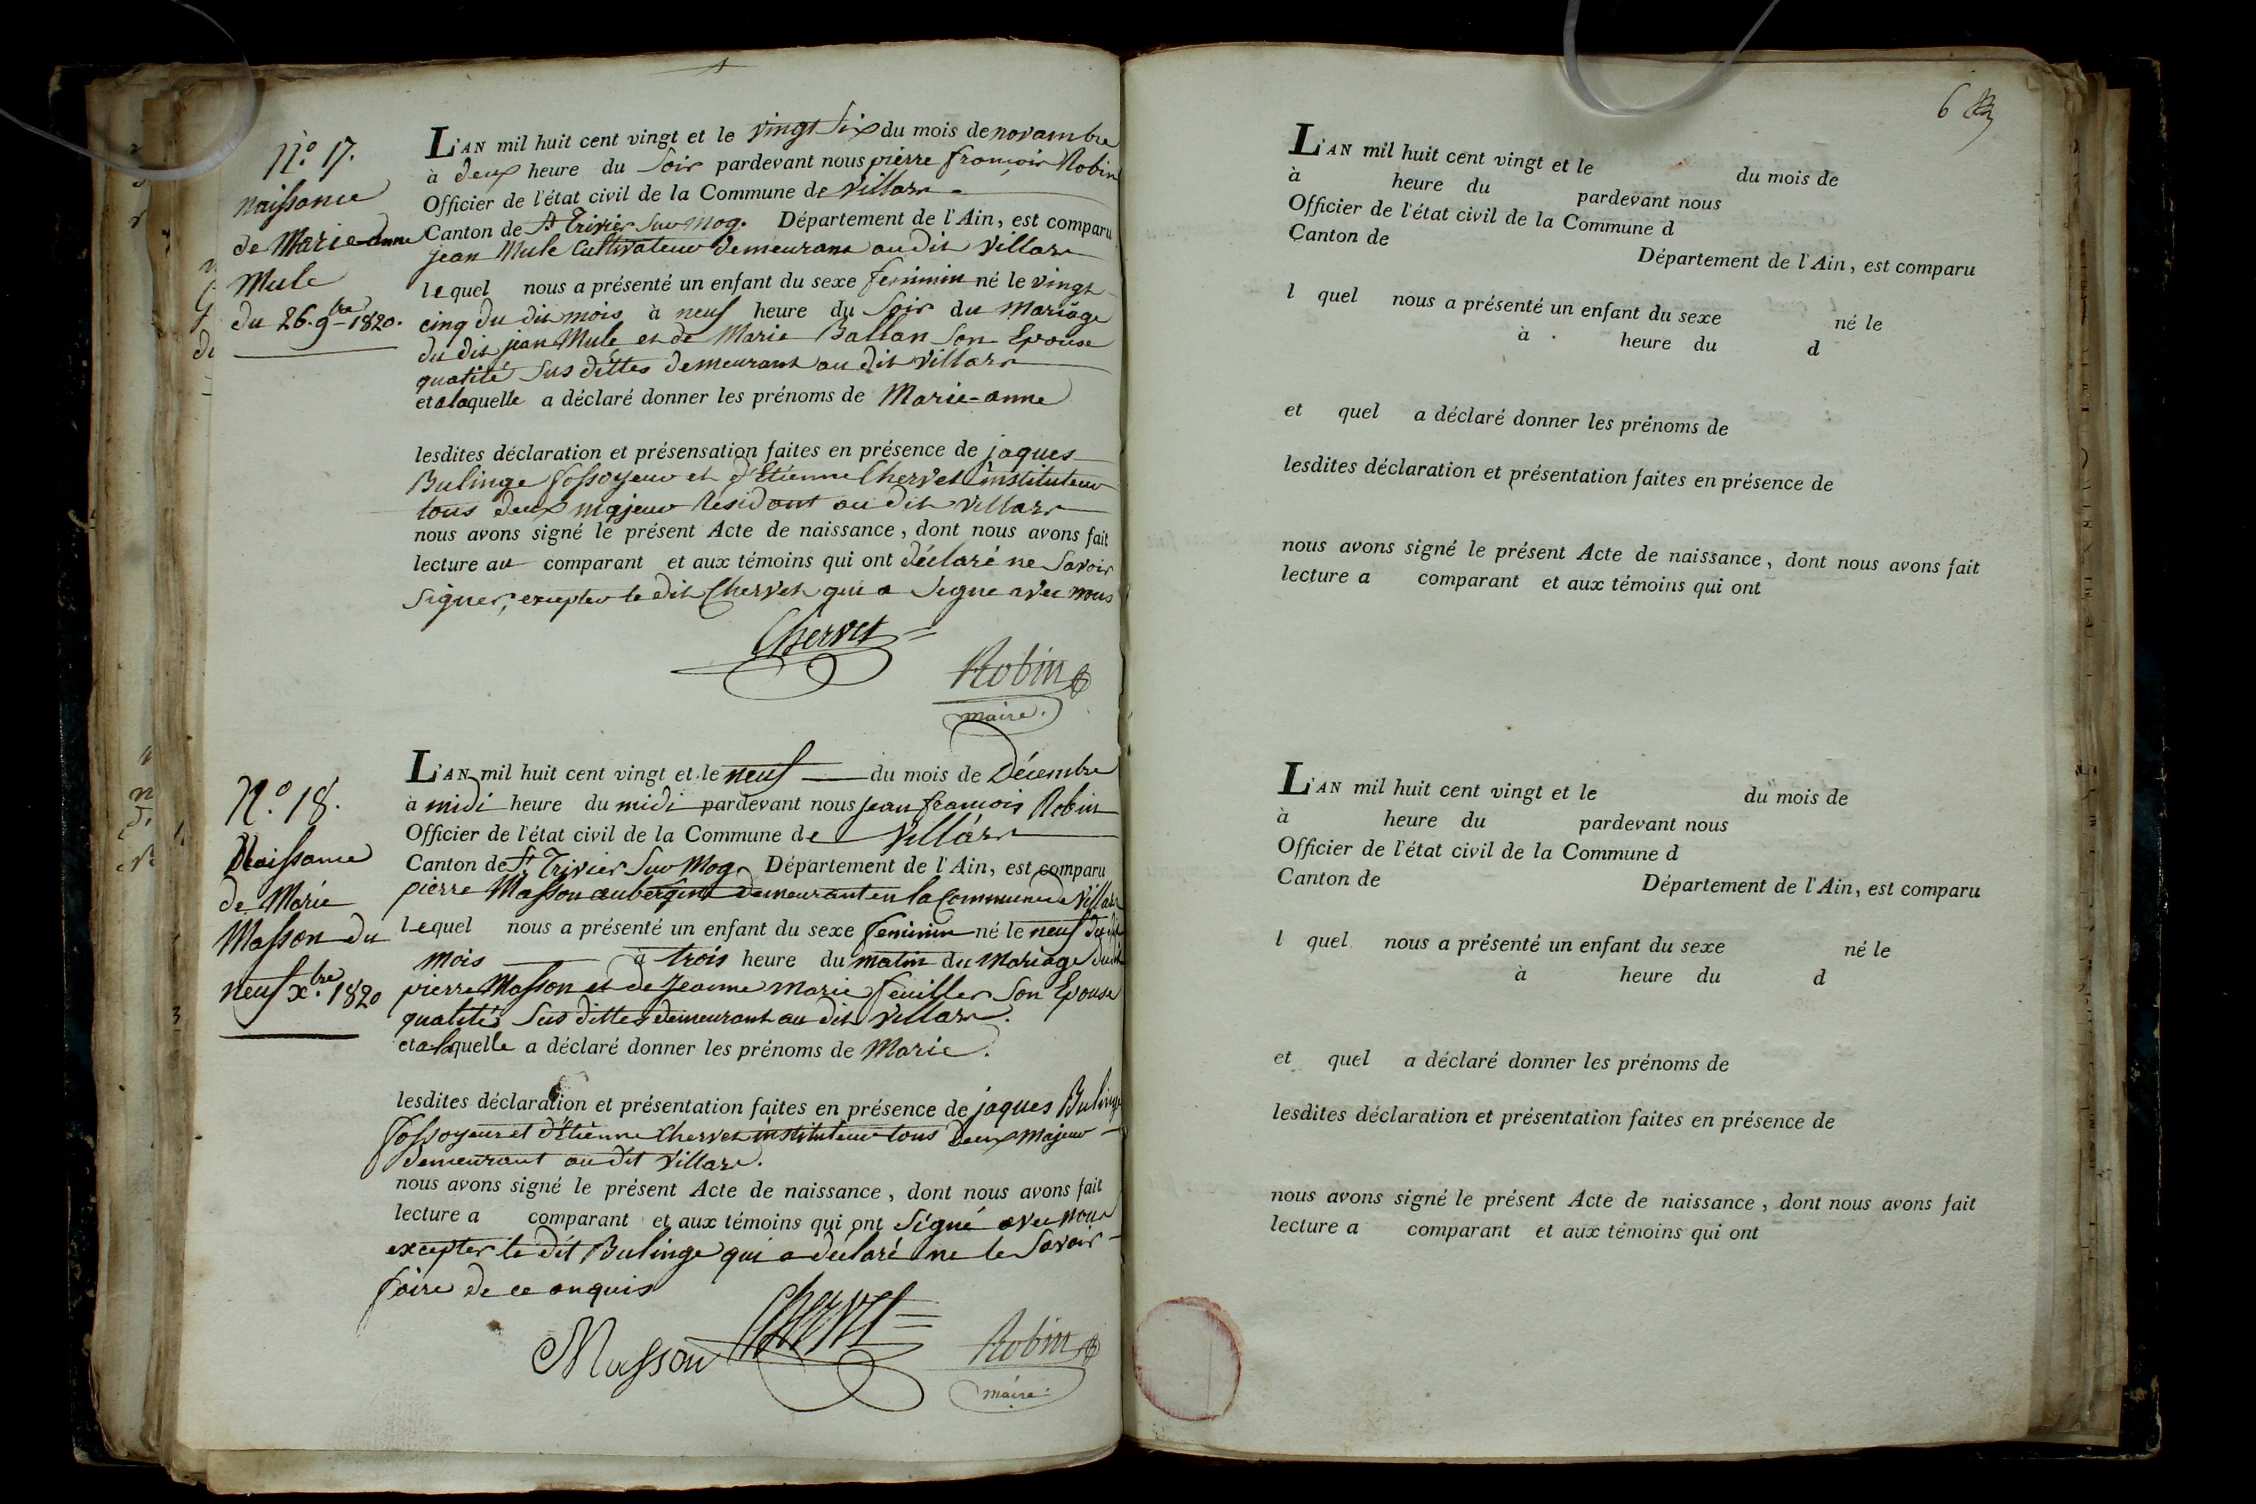 N.o 17.
naissance
de Marie-anne
Mule
du 26. 9bre 1820.
L'AN mil huit cent vingt et le vingt six du mois de novambre
à deux heure du Soir pardevant nous pierre françois Robin
Officier de l'état civil de la Commune de Villars
Canton de St Trivier Sur Mog. Département de l'Ain, est comparu
jean Mule Cultivateur demeurant au dit Villars
lequel nous a présenté un enfant du sexe feminin né le vingt
cinq du dit mois à neuf heure du Soir du Mariage
du dit jean Mule et de Marie Ballan Son Epouse
qualité Sus dittes demeurant au dit Villars
et a laquelle a déclaré donner les prénoms de Marie-anne
lesdites déclaration et présensation faites en présence de jaques
Bulinge fossoyeur et d'Etienne Chervet instituteur
tous deux majeur Residant au dit Villars
nous avons signé le présent Acte de naissance, dont nous avons fait
lecture au comparant et aux témoins qui ont déclaré ne Savoir
Signer, excepter le dit Chervet qui a Signe avec nous
Chervet
Robin
maire.
N.o 18.
Naissance
de Marie
Masson du
neuf xbre 1820
L'AN mil huit cent vingt et le neuf du mois de Décembre
à midi heure du midi pardevant nous jean françois Robin
Officier de l'état civil de la Commune de Villars
Canton de St Trivier Sur Mog. Département de l'Ain, est comparu
pierre Masson aubergiste demeurant en la Commune de Villars
lequel nous a présenté un enfant du sexe feminin né le neuf du dit
mois à trois heure du matin du Mariage du dit
pierre Masson et de Jeanne Marie feuillet Son Epouse
qualité Sus dittes demeurant au dit Villars.
et a laquelle a déclaré donner les prénoms de Marie.
lesdites déclaration et présentation faites en présence de jaques Bulinge
fossoyeur et d'Etienne Chervet instituteur tous deux majeur
demeurant au dit Villars.
nous avons signé le présent Acte de naissance, dont nous avons fait
lecture a comparant et aux témoins qui ont Signé avec nous
excepter le dit Bulinge qui a déclaré ne le Savoir
faire de ce enquis
Masson
Chervet
Robin
maire.
6
L'AN mil huit cent vingt et le du mois de
à heure du pardevant nous
Officier de l'état civil de la Commune d
Canton de Département de l'Ain, est comparu
l quel nous a présenté un enfant du sexe né le
à heure du d
et quel a déclaré donner les prénoms de
lesdites déclaration et présentation faites en présence de
nous avons signé le présent Acte de naissance, dont nous avons fait
lecture a comparant et aux témoins qui ont
L'AN mil huit cent vingt et le du mois de
à heure du pardevant nous
Officier de l'état civil de la Commune d
Canton de Département de l'Ain, est comparu
l quel nous a présenté un enfant du sexe né le
à heure du d
et quel a déclaré donner les prénoms de
lesdites déclaration et présentation faites en présence de
nous avons signé le présent Acte de naissance, dont nous avons fait
lecture a comparant et aux témoins qui ont